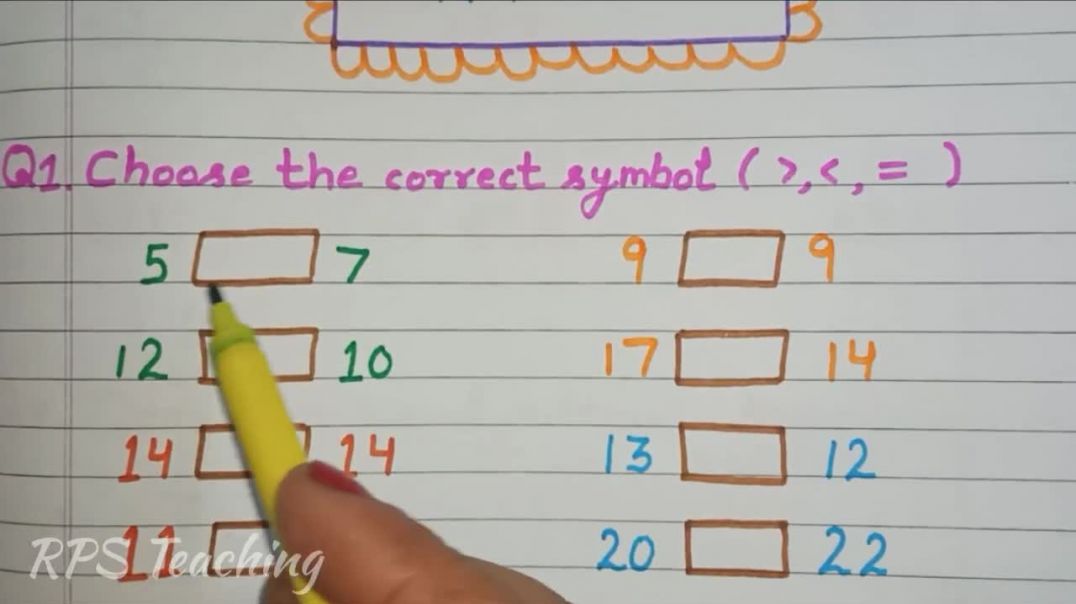 Q1. Choose the correct symbol ( >, <, = )
5 7 9 9
12 10 17 14
14 14 13 12
11 20 22
RPS Teaching